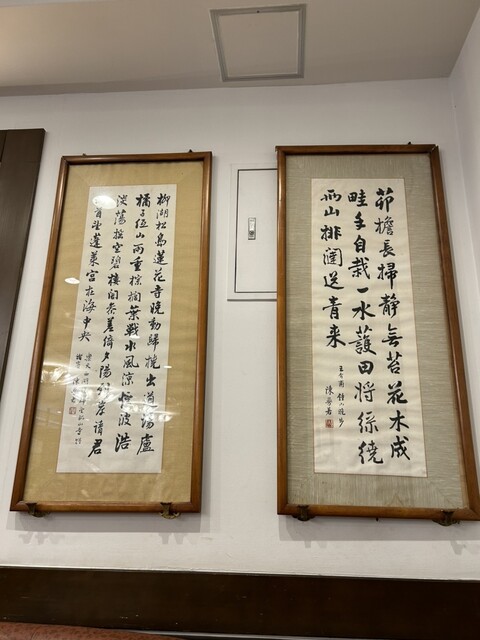 柳湖松島蓮花寺晚動歸橈出道場盧
橘子低山雨重棕櫚葉戰水風涼烟波浩
淡蕩搖空碧樓閣參差倚夕陽到岸請君
回首望蓬萊宮在海中央
茆檐長掃靜無苔花木成
畦手自栽一水護田將綠繞
兩山排闥送青来